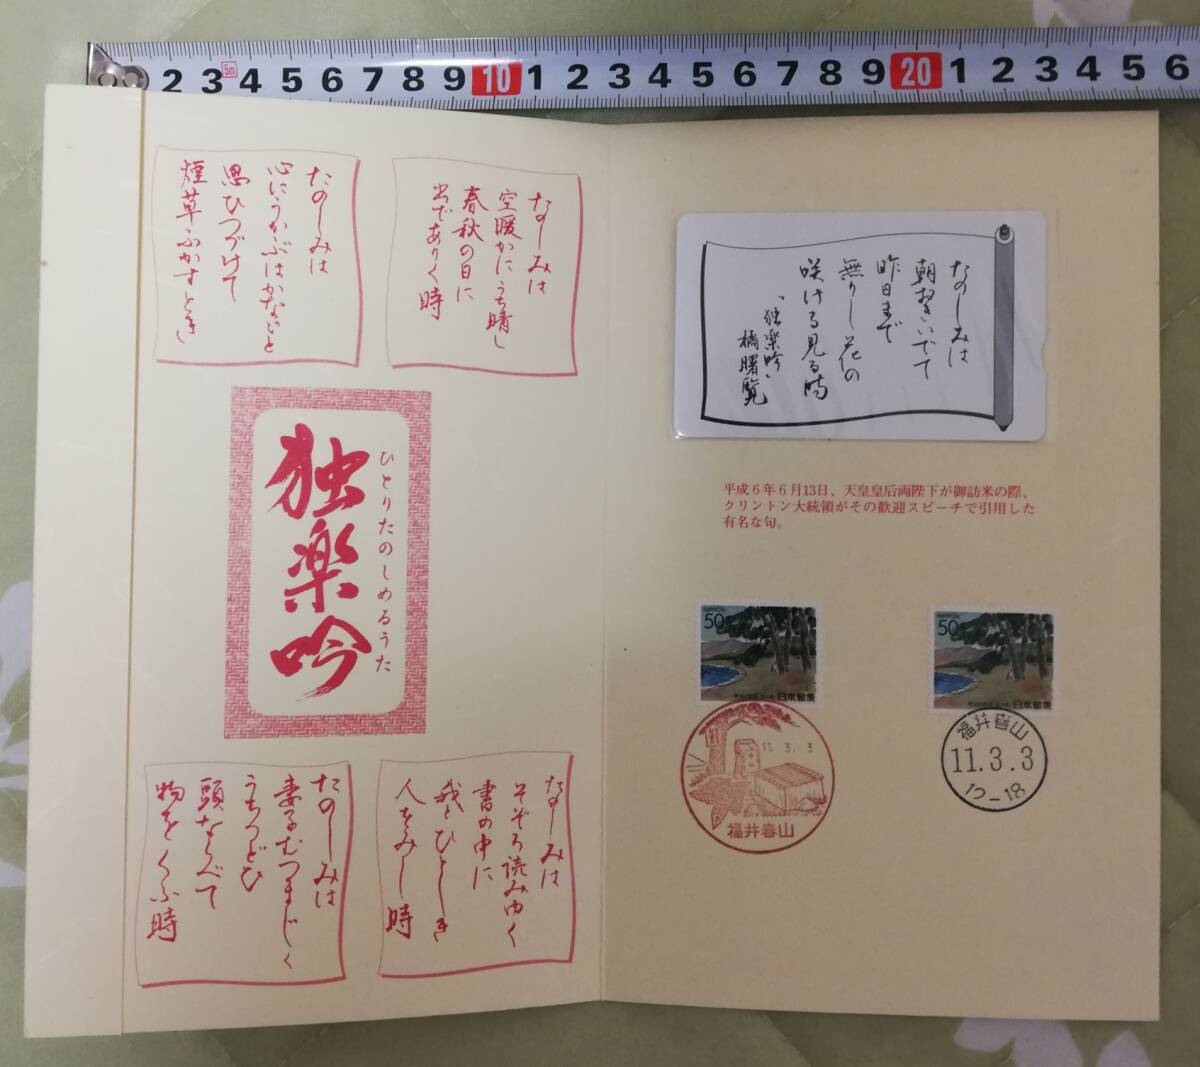 2 3 4 5 6 7 8 9 10 1 2 3 4 5 6 7 8 9 20 1 2 3 4 5 6
5m
たのしみは
空暖かにうち晴し
春秋の日に
出でありく時
たのしみは
心にうかぶはかなごと
思ひつづけて
煙草ふかすとき
独楽吟
ひとりたのしめるうた
たのしみは
そぞろ読みゆく
書の中に
我とひとしき
人をみし時
たのしみは
妻子むつまじく
うちつどひ
頭ならべて
物をくふ時
たのしみは
朝おきいでて
昨日まで
無りし花の
咲ける見る時
「独楽吟」
橘曙覧
平成6年6月13日、天皇皇后両陛下が御訪米の際、
クリントン大統領がその歓迎スピーチで引用した
有名な句。
NIPPON
50
日本郵便
NIPPON
50
日本郵便
11.3.3
福井春山
福井春山
11.3.3
12-18